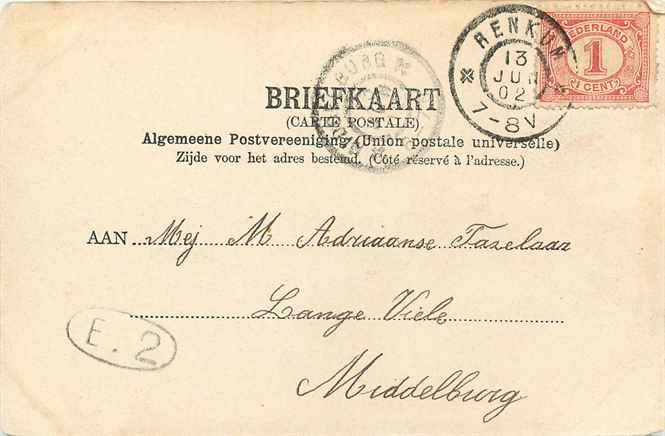 RENKUM
13
JUN
02
7-8V
NEDERLAND
1
1 CENT
BRIEFKAART
(CARTE POSTALE)
Algemeene Postvereeniging (Union postale universelle)
Zijde voor het adres bestemd. (Côté réservé à l'adresse.)
AAN Mej M Adriaanse Tazelaar
Lange Viele
Middelburg
E. 2